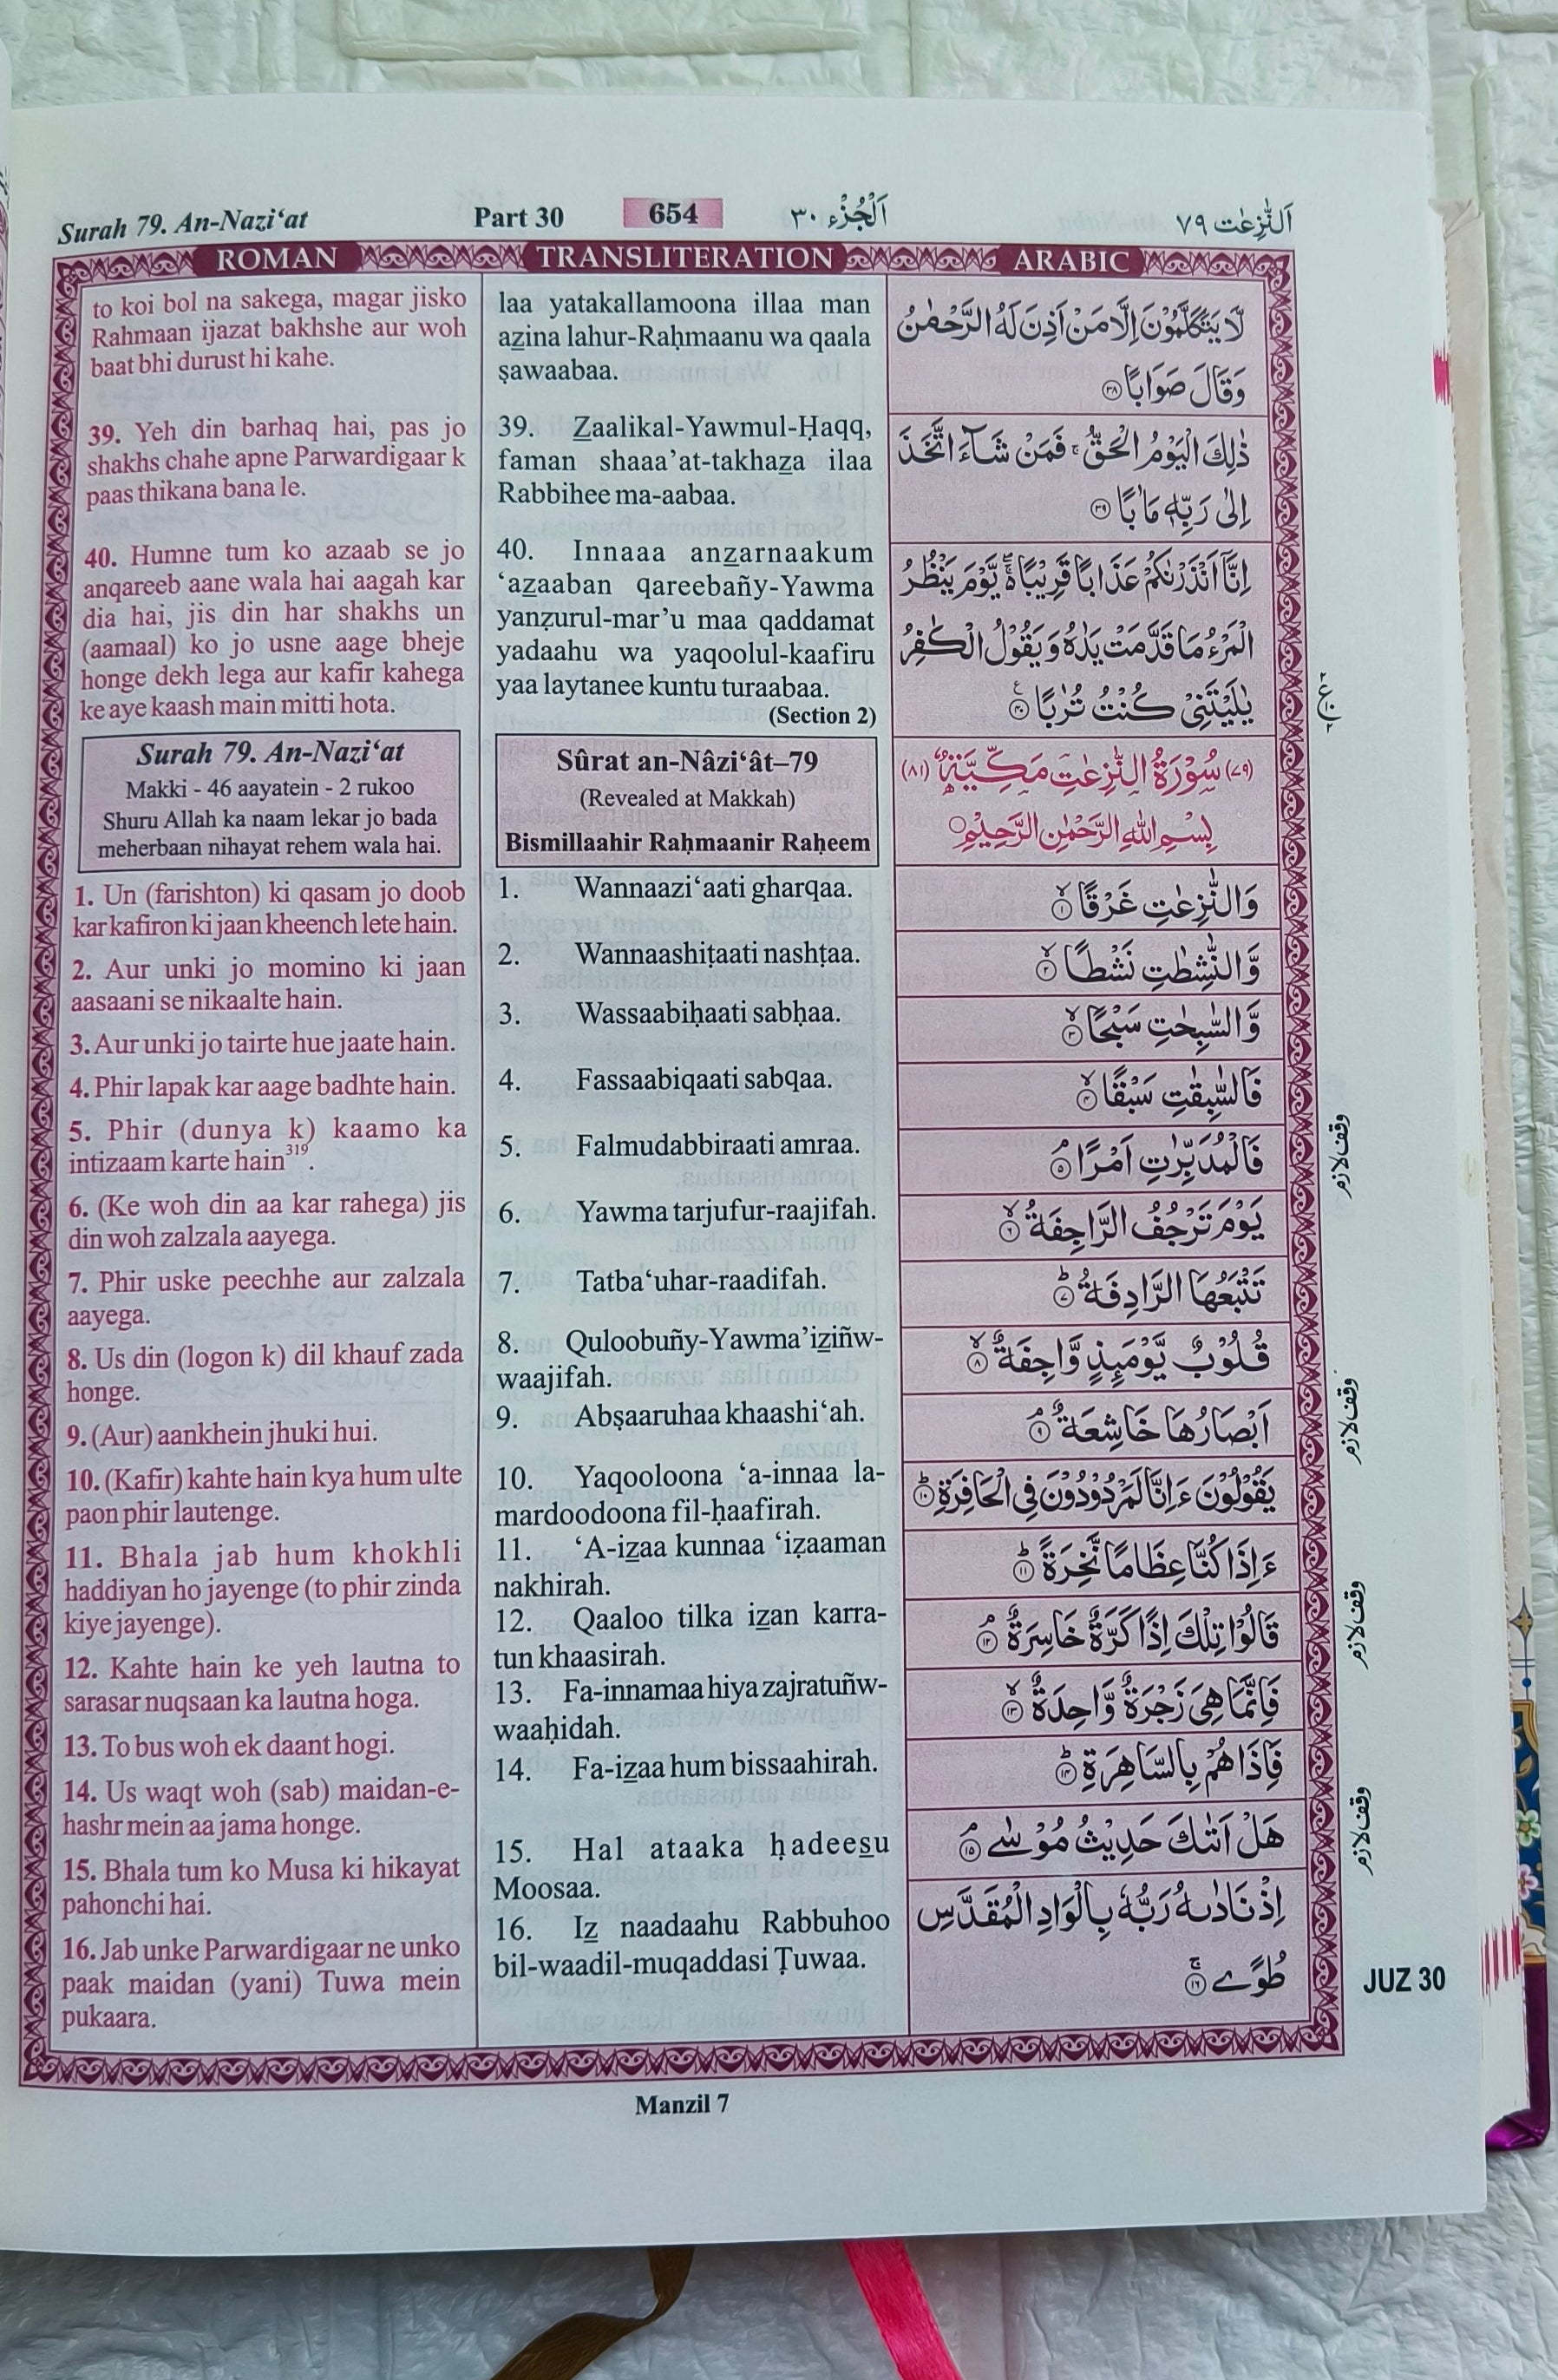 Surah 79. An-Nazi‘at
Part 30
654
اَلْجُزْء ٣٠
اَلنّٰزِعٰت ٧٩
ROMAN
TRANSLITERATION
ARABIC
to koi bol na sakega, magar jisko
Rahmaan ijazat bakhshe aur woh
baat bhi durust hi kahe.
39. Yeh din barhaq hai, pas jo
shakhs chahe apne Parwardigaar k
paas thikana bana le.
40. Humne tum ko azaab se jo
anqareeb aane wala hai aagah kar
dia hai, jis din har shakhs un
(aamaal) ko jo usne aage bheje
honge dekh lega aur kafir kahega
ke aye kaash main mitti hota.
Surah 79. An-Nazi‘at
Makki - 46 aayatein - 2 rukoo
Shuru Allah ka naam lekar jo bada
meherbaan nihayat rehem wala hai.
1. Un (farishton) ki qasam jo doob
kar kafiron ki jaan kheench lete hain.
2. Aur unki jo momino ki jaan
aasaani se nikaalte hain.
3. Aur unki jo tairte hue jaate hain.
4. Phir lapak kar aage badhte hain.
5. Phir (dunya k) kaamo ka
intizaam karte hain³¹⁹.
6. (Ke woh din aa kar rahega) jis
din woh zalzala aayega.
7. Phir uske peechhe aur zalzala
aayega.
8. Us din (logon k) dil khauf zada
honge.
9. (Aur) aankhein jhuki hui.
10. (Kafir) kahte hain kya hum ulte
paon phir lautenge.
11. Bhala jab hum khokhli
haddiyan ho jayenge (to phir zinda
kiye jayenge).
12. Kahte hain ke yeh lautna to
sarasar nuqsaan ka lautna hoga.
13. To bus woh ek daant hogi.
14. Us waqt woh (sab) maidan-e-
hashr mein aa jama honge.
15. Bhala tum ko Musa ki hikayat
pahonchi hai.
16. Jab unke Parwardigaar ne unko
paak maidan (yani) Tuwa mein
pukaara.
laa yatakallamoona illaa man
az̲ina lahur-Raḥmaanu wa qaala
ṣawaabaa.
39. Z̲aalikal-Yawmul-Ḥaqq,
faman shaaa’at-takhaz̲a ilaa
Rabbihee ma-aabaa.
40. Innaaa anz̲arnaakum
‘az̲aaban qareebañy-Yawma
yanẓurul-mar’u maa qaddamat
yadaahu wa yaqoolul-kaafiru
yaa laytanee kuntu turaabaa.
(Section 2)
Sûrat an-Nâzi‘ât–79
(Revealed at Makkah)
Bismillaahir Raḥmaanir Raḥeem
1. Wannaazi‘aati gharqaa.
2. Wannaashiṭaati nashṭaa.
3. Wassaabiḥaati sabḥaa.
4. Fassaabiqaati sabqaa.
5. Falmudabbiraati amraa.
6. Yawma tarjufur-raajifah.
7. Tatba‘uhar-raadifah.
8. Quloobuñy-Yawma’iz̲iñw-
waajifah.
9. Abṣaaruhaa khaashi‘ah.
10. Yaqooloona ‘a-innaa la-
mardoodoona fil-ḥaafirah.
11. ‘A-iz̲aa kunnaa ‘iẓaaman
nakhirah.
12. Qaaloo tilka iz̲an karra-
tun khaasirah.
13. Fa-innamaa hiya zajratuñw-
waaḥidah.
14. Fa-iz̲aa hum bissaahirah.
15. Hal ataaka ḥadees̲u
Moosaa.
16. Iz̲ naadaahu Rabbuhoo
bil-waadil-muqaddasi Ṭuwaa.
لَّا يَتَكَلَّمُوْنَ اِلَّا مَنْ اَذِنَ لَهُ الرَّحْمٰنُ
وَقَالَ صَوَابًا ۝٣٨
ذٰلِكَ الْيَوْمُ الْحَقُّ ۚ فَمَنْ شَآءَ اتَّخَذَ
اِلٰى رَبِّهٖ مَاٰبًا ۝٣٩
اِنَّآ اَنْذَرْنٰكُمْ عَذَابًا قَرِيْبًا ەۚ يَّوْمَ يَنْظُرُ
الْمَرْءُ مَا قَدَّمَتْ يَدٰهُ وَيَقُوْلُ الْكٰفِرُ
يٰلَيْتَنِيْ كُنْتُ تُرٰبًا ۝٤٠
(٧٩) سُوْرَةُ النّٰزِعٰتِ مَكِّيَّةٌ (٨١)
بِسْمِ اللّٰهِ الرَّحْمٰنِ الرَّحِيْمِ ۝
وَالنّٰزِعٰتِ غَرْقًا ۝١ۙ
وَّالنّٰشِطٰتِ نَشْطًا ۝٢ۙ
وَّالسّٰبِحٰتِ سَبْحًا ۝٣ۙ
فَالسّٰبِقٰتِ سَبْقًا ۝٤ۙ
فَالْمُدَبِّرٰتِ اَمْرًا ۝٥ۘ
يَوْمَ تَرْجُفُ الرَّاجِفَةُ ۝٦ۙ
تَتْبَعُهَا الرَّادِفَةُ ۝٧ؕ
قُلُوْبٌ يَّوْمَىِٕذٍ وَّاجِفَةٌ ۝٨ۙ
اَبْصَارُهَا خَاشِعَةٌ ۝٩ۘ
يَقُوْلُوْنَ ءَاِنَّا لَمَرْدُوْدُوْنَ فِي الْحَافِرَةِ ۝١٠ؕ
ءَاِذَا كُنَّا عِظَامًا نَّخِرَةً ۝١١ؕ
قَالُوْا تِلْكَ اِذًا كَرَّةٌ خَاسِرَةٌ ۝١٢ۘ
فَاِنَّمَا هِيَ زَجْرَةٌ وَّاحِدَةٌ ۝١٣ۙ
فَاِذَا هُمْ بِالسَّاهِرَةِ ۝١٤ؕ
هَلْ اَتٰىكَ حَدِيْثُ مُوْسٰى ۝١٥ۘ
اِذْ نَادٰىهُ رَبُّهٗ بِالْوَادِ الْمُقَدَّسِ
طُوًى ۝١٦ۚ
ع
وقف لازم
وقف لازم
وقف لازم
وقف لازم
JUZ 30
Manzil 7